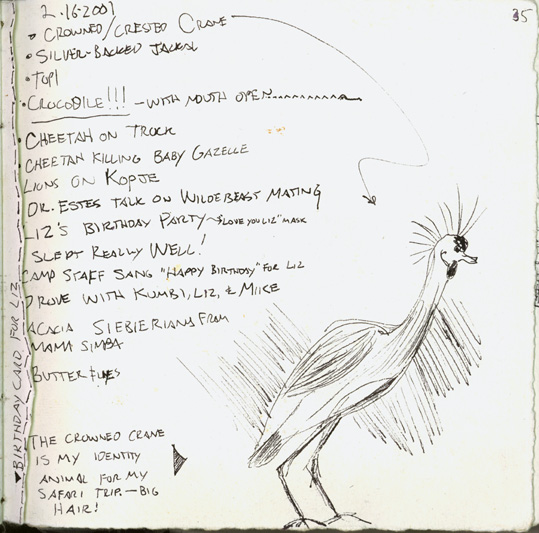 2.16.2001
35
• CROWNED/CRESTED CRANE
• SILVER-BACKED JACKAL
• TOPI
• CROCODILE!!! - WITH MOUTH OPEN
• CHEETAH ON TRUCK
CHEETAH KILLING BABY GAZELLE
LIONS ON KOPJE
DR. ESTES TALK ON WILDEBEAST MATING
LIZ'S BIRTHDAY PARTY - "LOVE YOU LIZ" MASK
SLEPT REALLY WELL!
CAMP STAFF SANG "HAPPY BIRTHDAY" FOR LIZ
DROVE WITH KUMBI, LIZ, & MIKE
ACACIA SIEBIERIANS FROM
MAMA SIMBA
BUTTERFLIES
BIRTHDAY CARD FOR LIZ
THE CROWNED CRANE
IS MY IDENTITY
ANIMAL FOR MY
SAFARI TRIP. - BIG
HAIR!